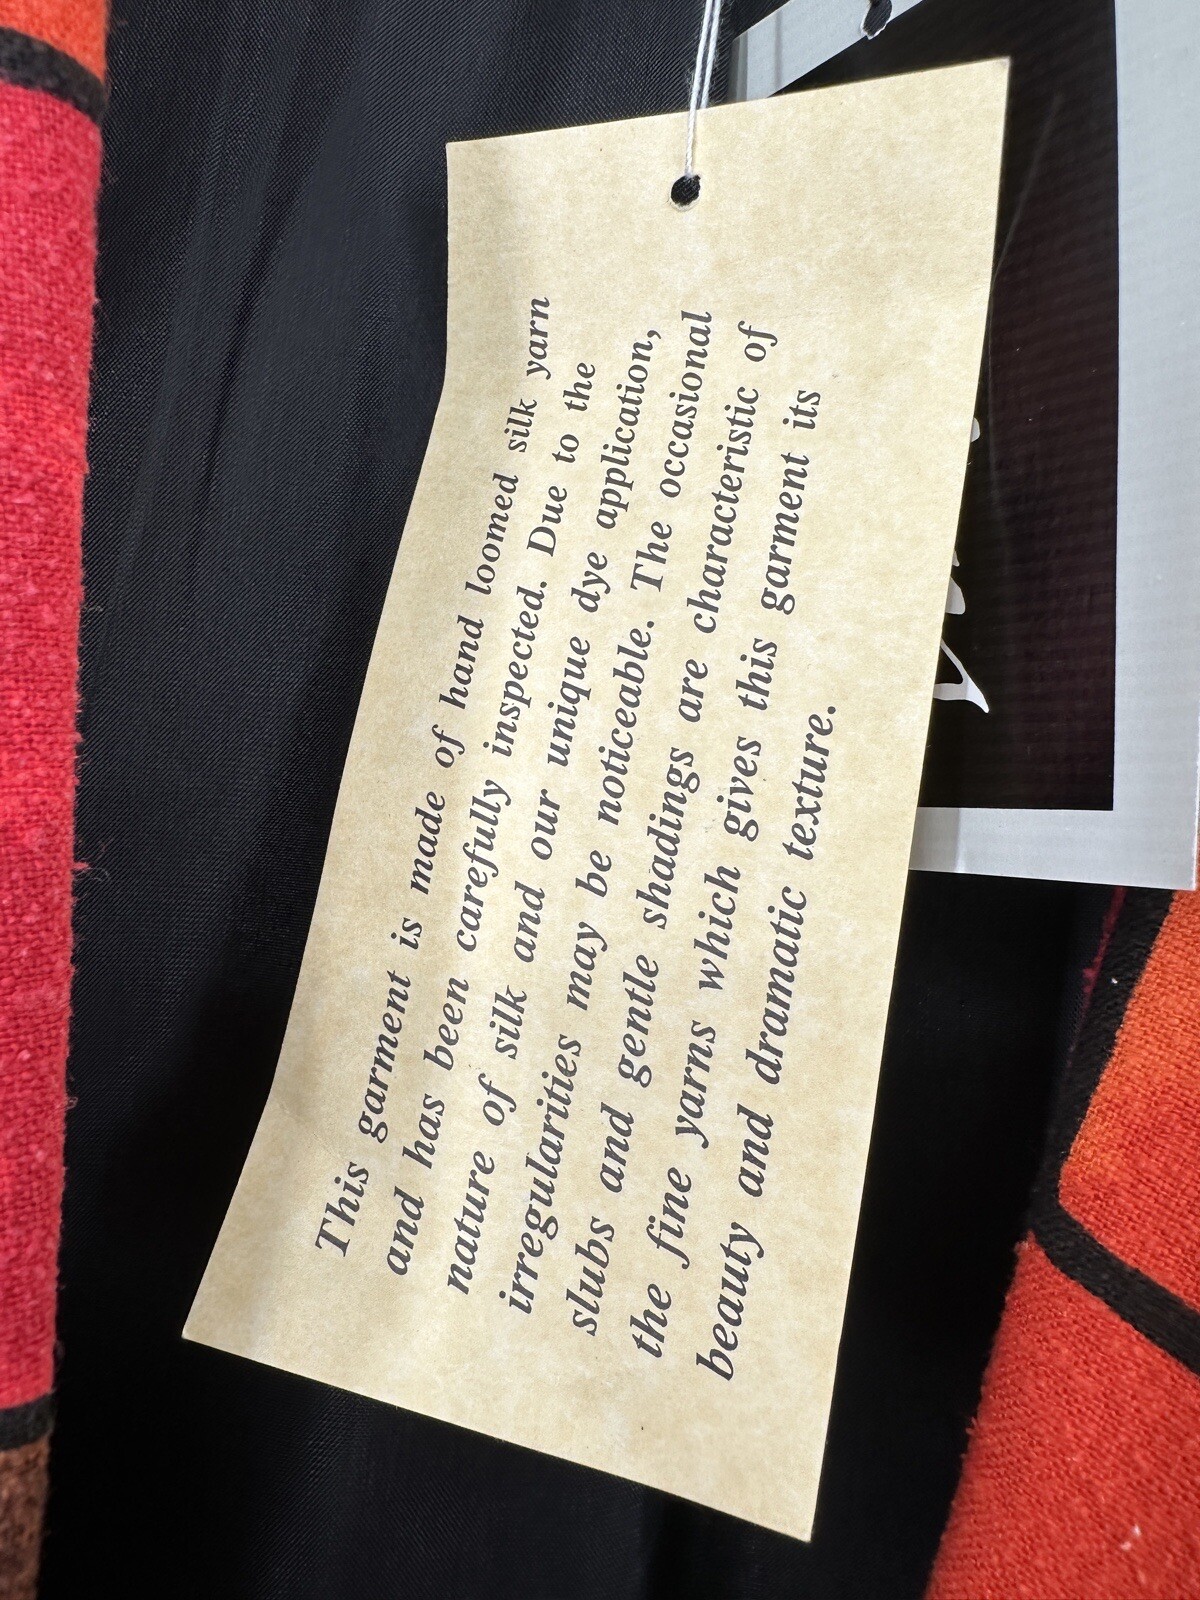 This garment is made of hand loomed silk yarn
and has been carefully inspected. Due to the
nature of silk and our unique dye application,
irregularities may be noticeable. The occasional
slubs and gentle shadings are characteristic of
the fine yarns which gives this garment its
beauty and dramatic texture.